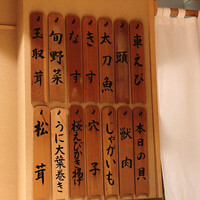 車えび
頭
太刀魚
きす
なす
旬野菜
玉取茸
本日の貝
獣肉
じゃがいも
穴子
桜えびかき揚げ
うに大葉巻き
松茸